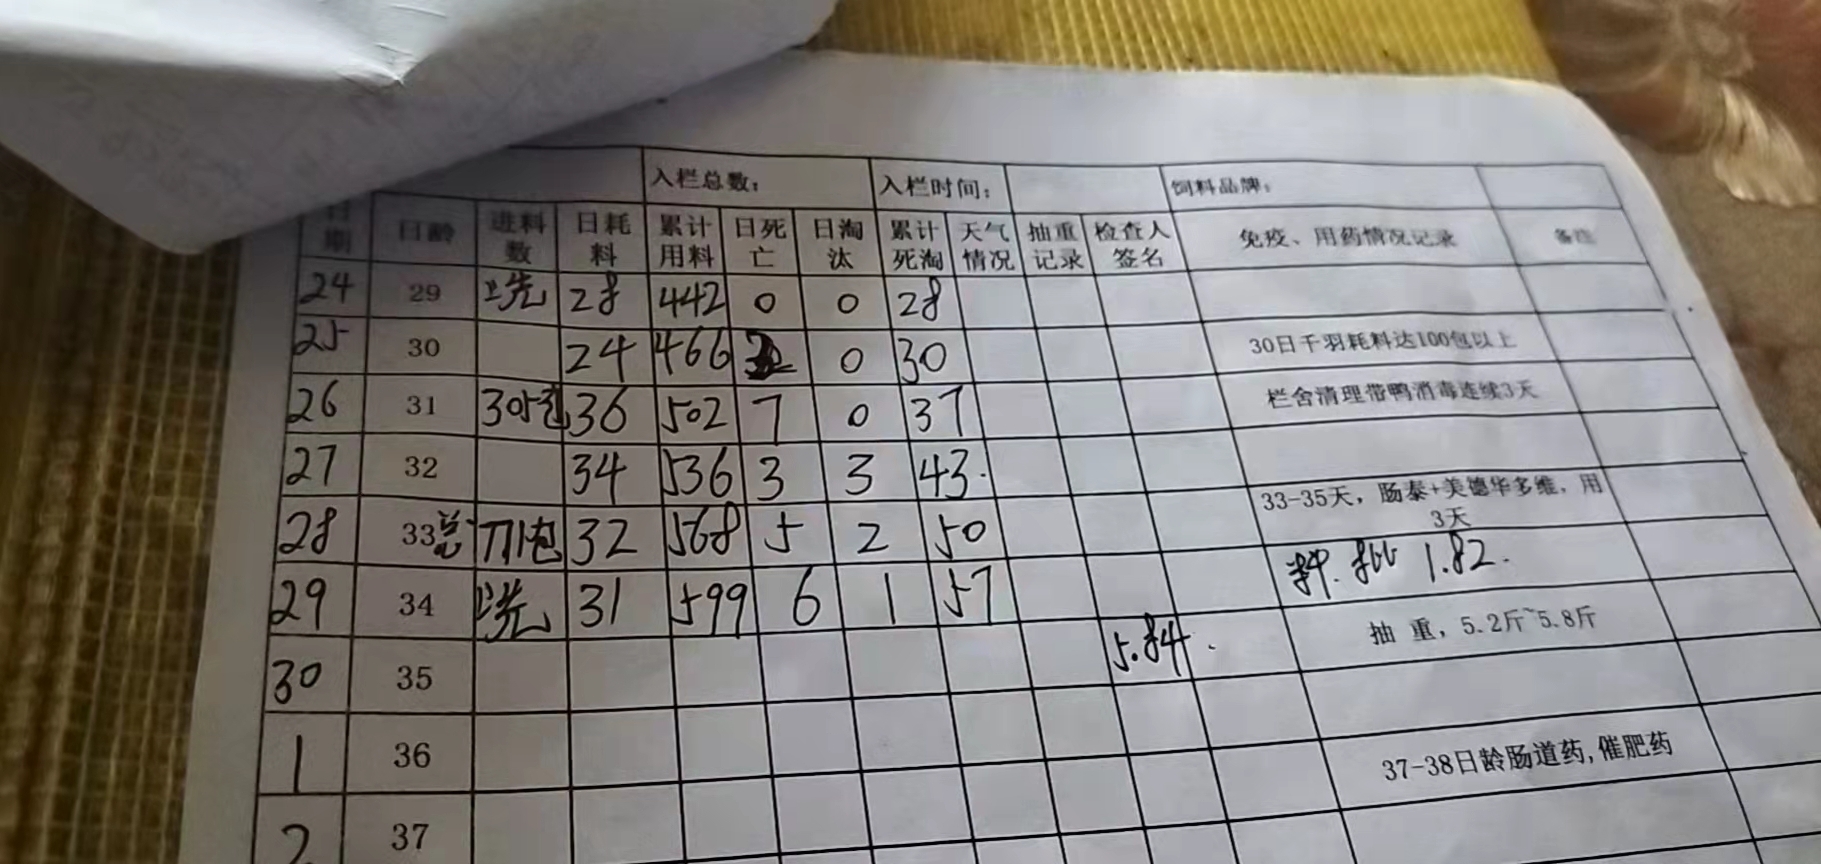 入栏总数: 入栏时间: 饲料品牌:
日期 日龄 进料数 日耗料 累计用料 日死亡 日淘汰 累计死淘 天气情况 抽重记录 检查人签名 免疫、用药情况记录 备注
24 29 28 442 0 0 28
25 30 24 466 0 30 30日千羽耗料达100包以上
26 31 305包 36 502 7 0 37 栏舍清理带鸭消毒连续3天
27 32 34 536 3 3 43.
28 33 32 568 5 2 50 33-35天, 肠泰+美德华多维, 用3天
29 34 31 599 6 1 57 1.82.
30 35 5.84. 抽 重, 5.2斤~5.8斤
1 36
2 37 37-38日龄肠道药,催肥药